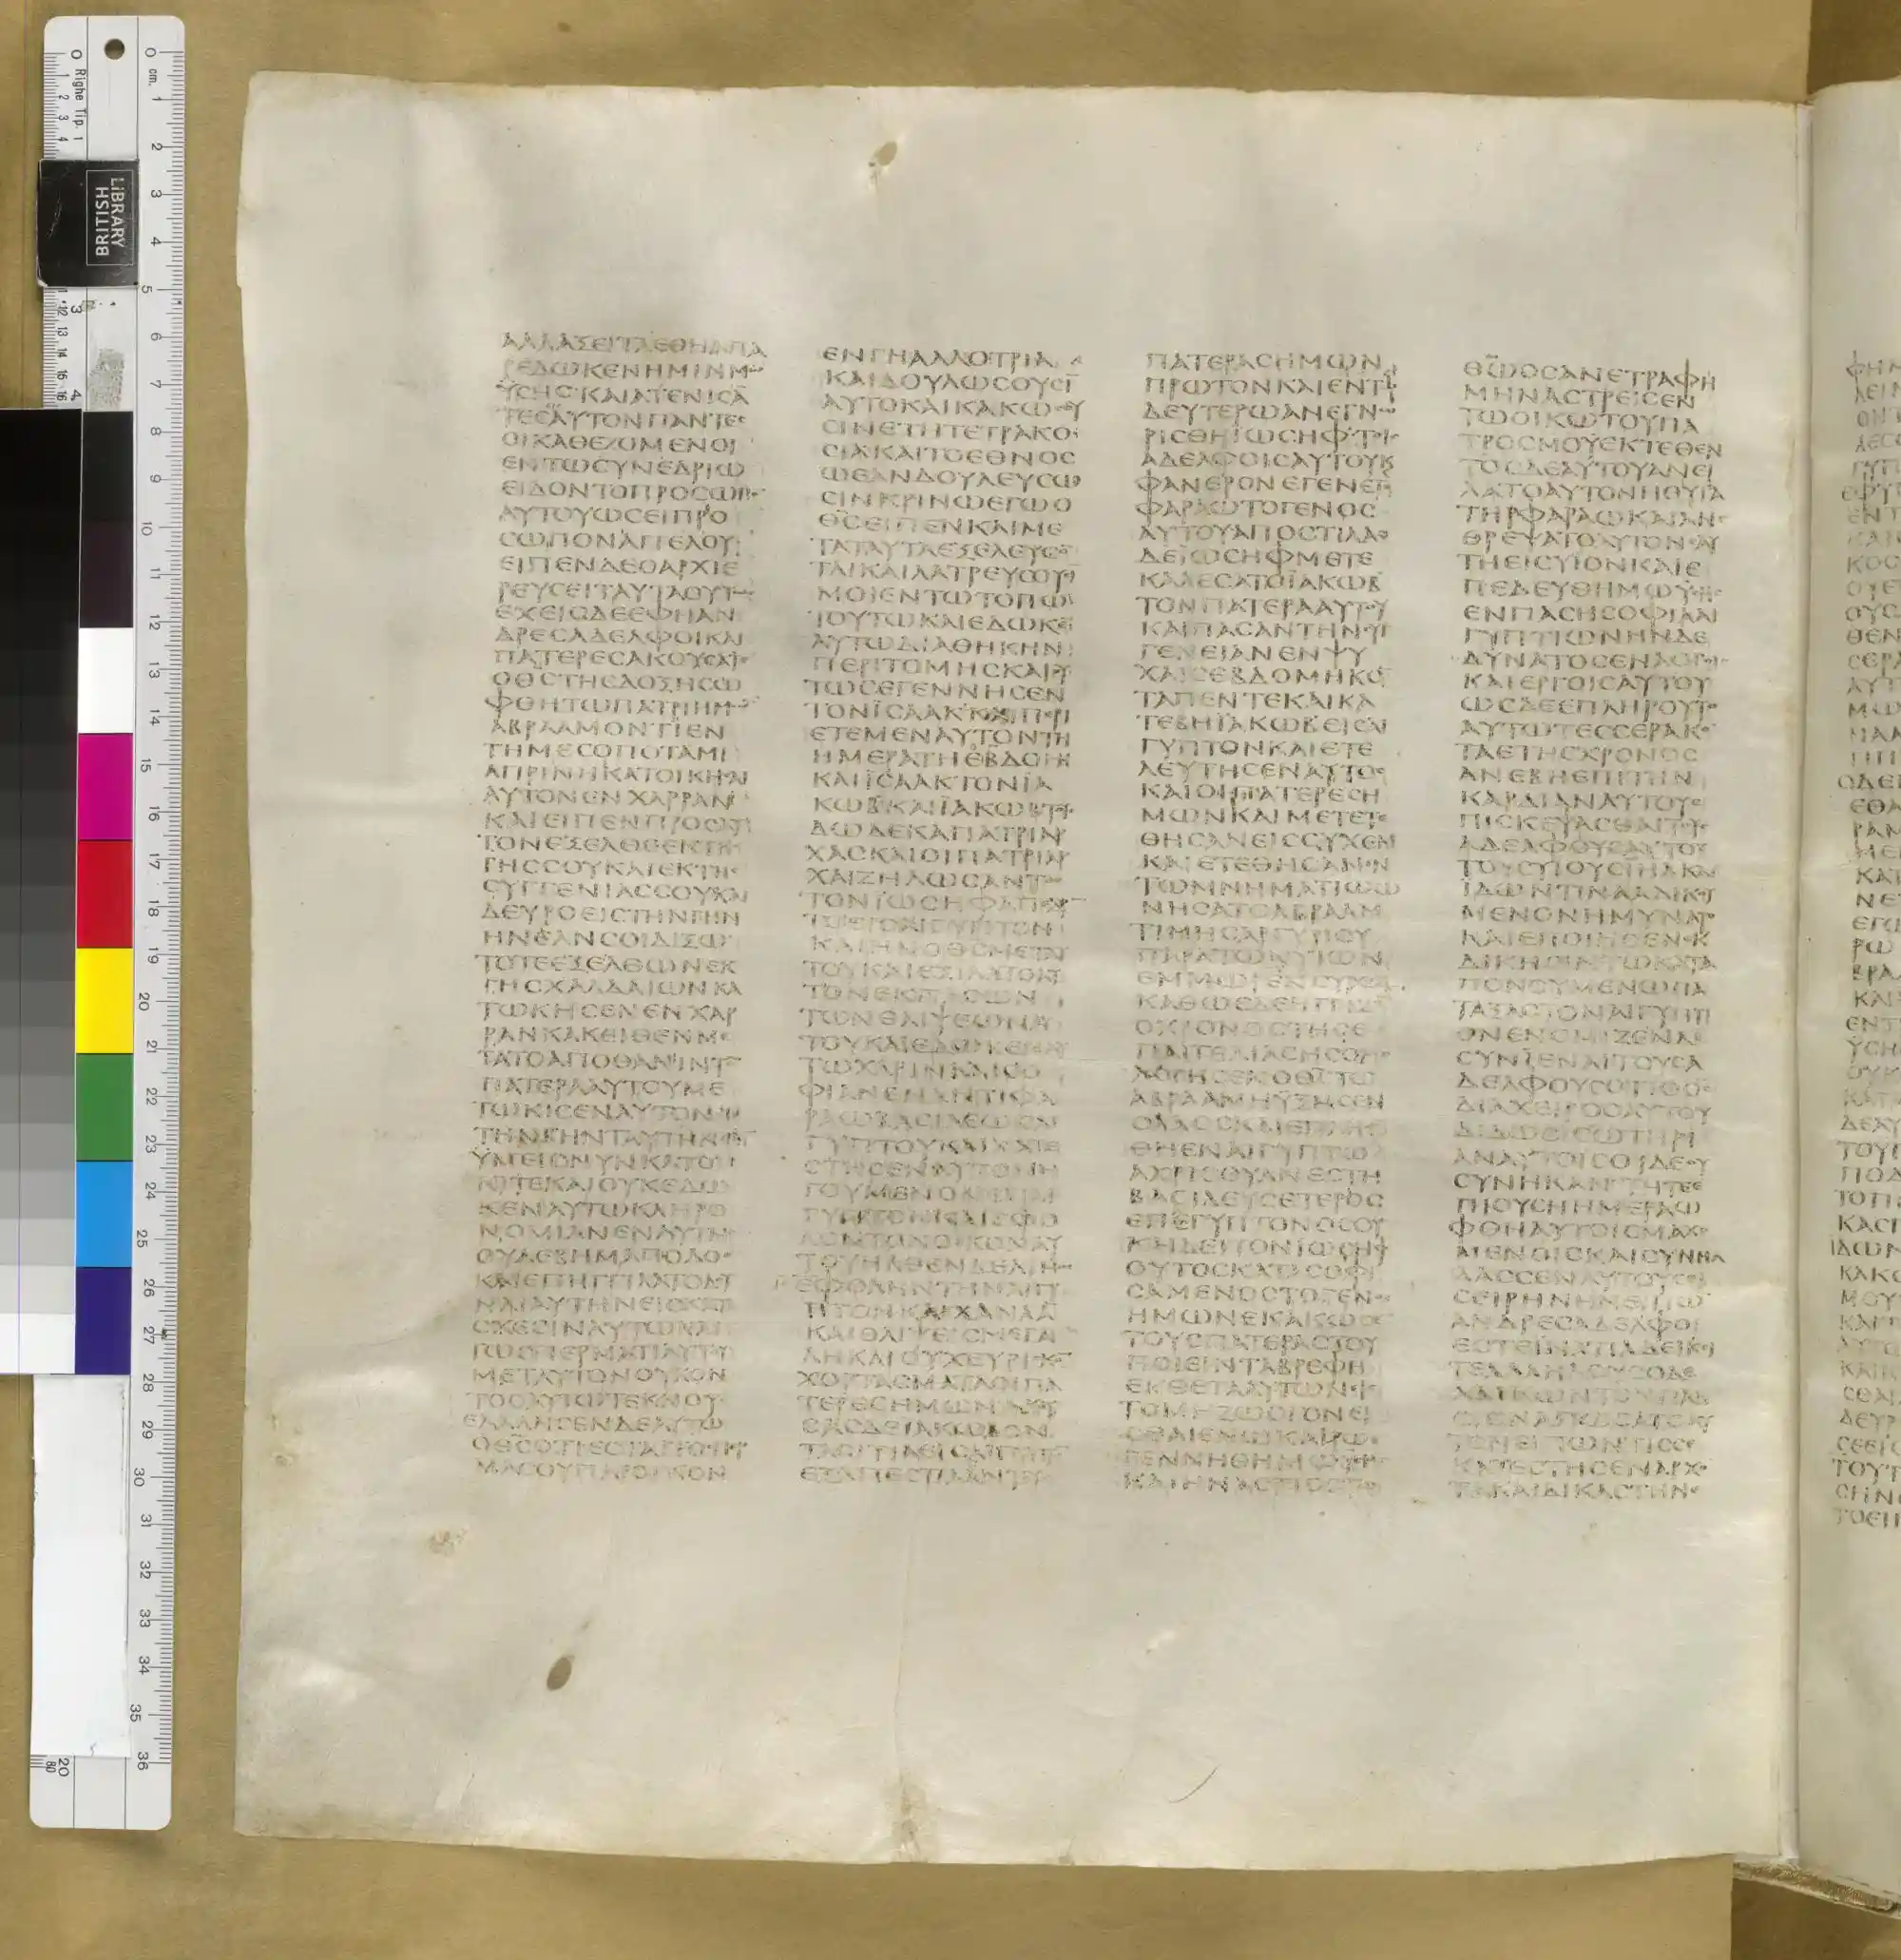 BRITISH
LIBRARY
ΑΛΛΑΞΕΙΤΑΕΘΗΑΠΑ
ΡΕΔΩΚΕΝΗΜΙΝΜΩ
ΫΣΗΣΚΑΙΑΤΕΝΙΣΑ̅
ΤΕΣΑΥΤΟΝΠΑΝΤΕΣ
ΟΙΚΑΘΕΖΟΜΕΝΟΙ
ΕΝΤΩΣΥΝΕΔΡΙΩ
ΕΙΔΟΝΤΟΠΡΟΣΩΠΟ̅
ΑΥΤΟΥΩΣΕΙΠΡΟ
ΣΩΠΟΝΑΓΓΕΛΟΥ
ΕΙΠΕΝΔΕΟΑΡΧΙΕ
ΡΕΥΣΕΙΤΑΥΤΑΟΥΤΩΣ
ΕΧΕΙΟΔΕΕΦΗΑΝ
ΔΡΕΣΑΔΕΛΦΟΙΚΑΙ
ΠΑΤΕΡΕΣΑΚΟΥΣΑΤΕ
ΟΘ̅ΣΤΗΣΔΟΞΗΣΩ
ΦΘΗΤΩΠΑΤΡΙΗΜΩ̅
ΑΒΡΑΑΜΟΝΤΙΕΝ
ΤΗΜΕΣΟΠΟΤΑΜΙ
ΑΠΡΙΝΗΚΑΤΟΙΚΗΣΑΙ
ΑΥΤΟΝΕΝΧΑΡΡΑΝ
ΚΑΙΕΙΠΕΝΠΡΟΣΑΥ
ΤΟΝΕΞΕΛΘΕΕΚΤΗΣ
ΓΗΣΣΟΥΚΑΙΕΚΤΗΣ
ΣΥΓΓΕΝΙΑΣΣΟΥΚΑΙ
ΔΕΥΡΟΕΙΣΤΗΝΓΗΝ
ΗΝΕΑΝΣΟΙΔΙΞΩ
ΤΟΤΕΕΞΕΛΘΩΝΕΚ
ΓΗΣΧΑΛΔΑΙΩΝΚΑ
ΤΩΚΗΣΕΝΕΝΧΑΡ
ΡΑΝΚΑΚΕΙΘΕΝΜΕ
ΤΑΤΟΑΠΟΘΑΝΙΝΤΟ̅
ΠΑΤΕΡΑΑΥΤΟΥΜΕ
ΤΩΚΙΣΕΝΑΥΤΟΝΕΙΣ
ΤΗΝΓΗΝΤΑΥΤΗΝΕΙΣΗ̅
ΫΜΕΙΣΝΥΝΚΑΤΟΙ
ΚΙΤΕΚΑΙΟΥΚΕΔΩ
ΚΕΝΑΥΤΩΚΛΗΡΟ
ΝΟΜΙΑΝΕΝΑΥΤΗ
ΟΥΔΕΒΗΜΑΠΟΔΟΣ
ΚΑΙΕΠΗΓΓΙΛΑΤΟΔΟΥ
ΝΑΙΑΥΤΗΝΕΙΣΚΑΤΑ
ΣΧΕΣΙΝΑΥΤΩΚΑΙ
ΤΩΣΠΕΡΜΑΤΙΑΥΤΟΥ
ΜΕΤΑΥΤΟΝΟΥΚΟΝ
ΤΟΣΑΥΤΩΤΕΚΝΟΥ
ΕΛΑΛΗΣΕΝΔΕΑΥΤΩ
ΟΘ̅ΣΟΤΙΕΣΤΑΙΤΟΣΠΕΡ
ΜΑΣΟΥΠΑΡΟΙΚΟΝ
ΕΝΓΗΑΛΛΟΤΡΙΑ
ΚΑΙΔΟΥΛΩΣΟΥΣΙ̅
ΑΥΤΟΚΑΙΚΑΚΩΣΟΥ
ΣΙΝΕΤΗΤΕΤΡΑΚΟ
ΣΙΑΚΑΙΤΟΕΘΝΟΣ
ΩΕΑΝΔΟΥΛΕΥΣΩ
ΣΙΝΚΡΙΝΩΕΓΩΟ
Θ̅ΣΕΙΠΕΝΚΑΙΜΕ
ΤΑΤΑΥΤΑΕΞΕΛΕΥΣΟ̅
ΤΑΙΚΑΙΛΑΤΡΕΥΣΟΥΣΙ̅
ΜΟΙΕΝΤΩΤΟΠΩ
ΤΟΥΤΩΚΑΙΕΔΩΚΕ̅
ΑΥΤΩΔΙΑΘΗΚΗΝ
ΠΕΡΙΤΟΜΗΣΚΑΙΟΥ
ΤΩΣΕΓΕΝΝΗΣΕΝ
ΤΟΝΪΣΑΑΚΚΑΙΠΕΡΙ
ΕΤΕΜΕΝΑΥΤΟΝΤΗ
ΗΜΕΡΑΤΗΕΒΔΟΗ
ΚΑΙΪΣΑΑΚΤΟΝΪΑ
ΚΩΒΚΑΙΪΑΚΩΒΤΟΥΣ
ΔΩΔΕΚΑΠΑΤΡΙΑΡ
ΧΑΣΚΑΙΟΙΠΑΤΡΙΑΡ
ΧΑΙΖΗΛΩΣΑΝΤΕΣ
ΤΟΝΪΩΣΗΦΑΠΕΔΟ̅
ΤΟΕΙΣΑΙΓΥΠΤΟΝ
ΚΑΙΗΝΟΘ̅ΣΜΕΤΑΥ
ΤΟΥΚΑΙΕΞΙΛΑΤΟΑΥ
ΤΟΝΕΚΠΑΣΩΝ
ΤΩΝΘΛΙΨΕΩΝΑΥ
ΤΟΥΚΑΙΕΔΩΚΕΝΑΥ
ΤΩΧΑΡΙΝΚΑΙΣΟ
ΦΙΑΝΕΝΑΝΤΙΦΑ
ΡΑΩΒΑΣΙΛΕΩΣΑΙ
ΓΥΠΤΟΥΚΑΙΚΑΤΕ
ΣΤΗΣΕΝΑΥΤΟΝΗ
ΓΟΥΜΕΝΟΝΕΠΑΙ
ΓΥΠΤΟΝΚΑΙΕΦΟ
ΛΟΝΤΟΝΟΙΚΟΝΑΥ
ΤΟΥΗΛΘΕΝΔΕΛΙΜΟΣ
ΕΦΟΛΗΝΤΗΝΑΙΓΥ
ΠΤΟΝΚΑΙΧΑΝΑΑ̅
ΚΑΙΘΛΙΨΕΙΣΜΕΓΑ
ΛΗΚΑΙΟΥΧΕΥΡΙΣΚΟ̅
ΧΟΡΤΑΣΜΑΤΑΟΙΠΑ
ΤΕΡΕΣΗΜΩΝΑΚΟΥ
ΣΑΣΔΕΪΑΚΩΒΟΝ
ΤΑΣΙΤΙΑΕΙΣΑΙΓΥΠΤΟ̅
ΕΞΑΠΕΣΤΙΛΕΝΤΟΥΣ
ΠΑΤΕΡΑΣΗΜΩΝ
ΠΡΩΤΟΝΚΑΙΕΝΤΩ
ΔΕΥΤΕΡΩΑΝΕΓΝΩ
ΡΙΣΘΗΪΩΣΗΦΤΟΙΣ
ΑΔΕΛΦΟΙΣΑΥΤΟΥΚ
ΦΑΝΕΡΟΝΕΓΕΝΕΤΟ
ΦΑΡΑΩΤΟΓΕΝΟΣ
ΑΥΤΟΥΑΠΟΣΤΙΛΑΣ
ΔΕΪΩΣΗΦΜΕΤΕ
ΚΑΛΕΣΑΤΟΪΑΚΩΒ
ΤΟΝΠΑΤΕΡΑΑΥΤΟΥ
ΚΑΙΠΑΣΑΝΤΗΝΣΥΓ
ΓΕΝΕΙΑΝΕΝΨΥ
ΧΑΙΣΕΒΔΟΜΗΚΟ̅
ΤΑΠΕΝΤΕΚΑΙΚΑ
ΤΕΒΗΪΑΚΩΒΕΙΣΑΙ
ΓΥΠΤΟΝΚΑΙΕΤΕ
ΛΕΥΤΗΣΕΝΑΥΤΟΣ
ΚΑΙΟΙΠΑΤΕΡΕΣΗ
ΜΩΝΚΑΙΜΕΤΕΤΕ
ΘΗΣΑΝΕΙΣΣΥΧΕΜ
ΚΑΙΕΤΕΘΗΣΑΝΕΝ
ΤΩΜΝΗΜΑΤΙΩΩ
ΝΗΣΑΤΟΑΒΡΑΑΜ
ΤΙΜΗΣΑΡΓΥΡΙΟΥ
ΠΑΡΑΤΩΝΥΙΩΝ
ΕΜΜΩΡΕΝΣΥΧΕΜ
ΚΑΘΩΣΔΕΗΓΓΙΖΕ̅
ΟΧΡΟΝΟΣΤΗΣΕ
ΠΑΓΓΕΛΙΑΣΗΣΩΜΟ
ΛΟΓΗΣΕΝΟΘ̅ΣΤΩ
ΑΒΡΑΑΜΗΥΞΗΣΕΝ
ΟΛΑΟΣΚΑΙΕΠΛΗΘΥ̅
ΘΗΕΝΑΙΓΥΠΤΩ
ΑΧΡΙΣΟΥΑΝΕΣΤΗ
ΒΑΣΙΛΕΥΣΕΤΕΡΟΣ
ΕΠΕΓΥΠΤΟΝΟΣΟΥ
ΚΗΔΕΙΤΟΝΪΩΣΗΦ
ΟΥΤΟΣΚΑΤΑΣΟΦΙ
ΣΑΜΕΝΟΣΤΟΓΕΝΟΣ
ΗΜΩΝΕΚΑΚΩΣΕ
ΤΟΥΣΠΑΤΕΡΑΣΤΟΥ
ΠΟΙΕΙΝΤΑΒΡΕΦΗ
ΕΚΘΕΤΑΑΥΤΩΝΕΙΣ
ΤΟΜΗΖΩΟΓΟΝΕΙ
ΣΘΑΙΕΝΩΚΑΙΡΩ
ΓΕΝΝΗΘΗΜΩΫΣΗΣ
ΚΑΙΗΝΑΣΤΙΟΣΤΩ
Θ̅ΩΟΣΑΝΕΤΡΑΦΗ
ΜΗΝΑΣΤΡΕΙΣΕΝ
ΤΩΟΙΚΩΤΟΥΠΑ
ΤΡΟΣΜΟΥΕΚΤΕΘΕΝ
ΤΟΣΔΕΑΥΤΟΥΑΝΕΙ
ΛΑΤΟΑΥΤΟΝΗΘΥΓΑ
ΤΗΡΦΑΡΑΩΚΑΙΑΝΕ
ΘΡΕΨΑΤΟΑΥΤΟΝΕΑΥ
ΤΗΕΙΣΥΙΟΝΚΑΙΕ
ΠΕΔΕΥΘΗΜΩΫΣΗΣ
ΕΝΠΑΣΗΣΟΦΙΑΑΙ
ΓΥΠΤΙΩΝΗΝΔΕ
ΔΥΝΑΤΟΣΕΝΛΟΓΟΙΣ
ΚΑΙΕΡΓΟΙΣΑΥΤΟΥ
ΩΣΔΕΕΠΛΗΡΟΥΤΟ
ΑΥΤΩΤΕΣΣΕΡΑΚΟ̅
ΤΑΕΤΗΣΧΡΟΝΟΣ
ΑΝΕΒΗΕΠΙΤΗΝ
ΚΑΡΔΙΑΝΑΥΤΟΥΕ
ΠΙΣΚΕΨΑΣΘΑΙΤΟΥΣ
ΑΔΕΛΦΟΥΣΑΥΤΟΥ
ΤΟΥΣΥΙΟΥΣΙΗΛΚΑΙ
ΪΔΩΝΤΙΝΑΑΔΙΚΟΥ
ΜΕΝΟΝΗΜΥΝΑΤΟ
ΚΑΙΕΠΟΙΗΣΕΝΕΚ
ΔΙΚΗΣΙΝΤΩΚΑΤΑ
ΠΟΝΟΥΜΕΝΩΠΑ
ΤΑΞΑΣΤΟΝΑΙΓΥΠΤΙ
ΟΝΕΝΟΜΙΖΕΝΔΕ
ΣΥΝΪΕΝΑΙΤΟΥΣΑ
ΔΕΛΦΟΥΣΟΤΙΟΘ̅Σ
ΔΙΑΧΕΙΡΟΣΑΥΤΟΥ
ΔΙΔΩΣΙΣΩΤΗΡΙ
ΑΝΑΥΤΟΙΣΟΙΔΕΟΥ
ΣΥΝΗΚΑΝΤΗΤΕΕ
ΠΙΟΥΣΗΗΜΕΡΑΩ
ΦΘΗΑΥΤΟΙΣΜΑΧΟ
ΜΕΝΟΙΣΚΑΙΣΥΝΗΛ
ΛΑΣΣΕΝΑΥΤΟΥΣΕΙ
ΣΕΙΡΗΝΗΝΕΙΠΩ
ΑΝΔΡΕΣΑΔΕΛΦΟΙ
ΕΣΤΕΪΝΑΤΙΑΔΕΙΚΕΙ
ΤΕΑΛΛΗΛΟΥΣΟΔΕ
ΑΔΙΚΩΝΤΟΝΠΛΗ
ΣΙΟΝΑΠΩΣΑΤΟΑΥ
ΤΟΝΕΙΠΩΝΤΙΣΣΕ
ΚΑΤΕΣΤΗΣΕΝΑΡΧΟ̅
ΤΑΚΑΙΔΙΚΑΣΤΗΝΕ